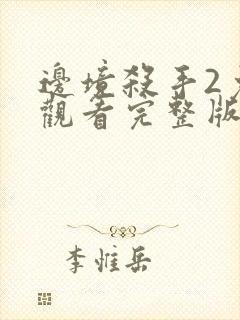 邊境殺手2
觀看完整版
李惟岳